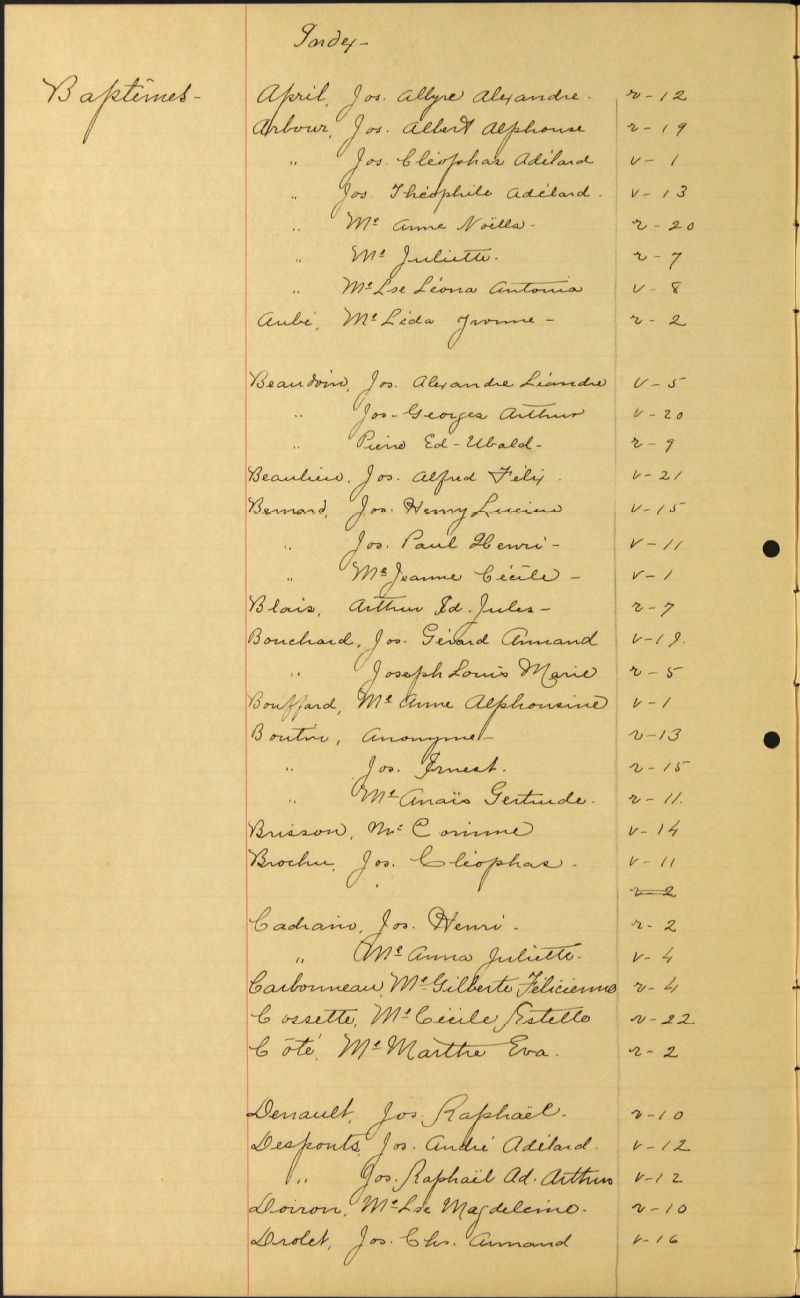 Index-
Baptêmes-
April, Jos. Allyre Alexandre. r-12
Arbour, Jos. Albert Alphonse r-19
" Jos. Cléophas Adélard v-1
" Jos. Théophile Adélard. v-13
" Me Anne Noëlla- r-20
" Me Juliette. r-7
" Me Lse Léona Antonia v-8
Aubé, Me Léda Yvonne- r-2
Beaudoin, Jos. Alexandre Léandre v-5
" Jos-Georges Arthur v-20
" Pierre Ed-Ubald- r-9
Beaulieu, Jos. Alfred Félix. v-21
Bernard, Jos. Henry Lucien v-15
" Jos. Paul Henri- v-11
" Me Jeanne Cécile- v-1
Blais, Arthur Ed. Jules- r-7
Bouchard, Jos. Gérard Armand v-19.
" Joseph Louis Marie r-5
Bouffard, Me Anne Alphonsine v-1
Boutin, Anonyme- v-13
" Jos. Ernest. r-15
" Me Anaïs Gertrude. r-11.
Brisson, Me Corinne v-14
Brochu, Jos. Cléophas- v-11
r-2
Cadrain, Jos. Henri. r-2
" Me Anna Juliette. v-4
Carbonneau, Me Gilberte Félicienne r-4
Cossette, Me Cécile Estelle v-22
Côté, Me Marthe Eva. r-2
Denault, Jos. Raphaël. v-10
Desponts, Jos. André Adélard. v-12
" Jos. Raphaël Ad. Arthur v-12
Doiron, Me Lse Magdeleine. v-10
Drolet, Jos. Chs. Armand v-16